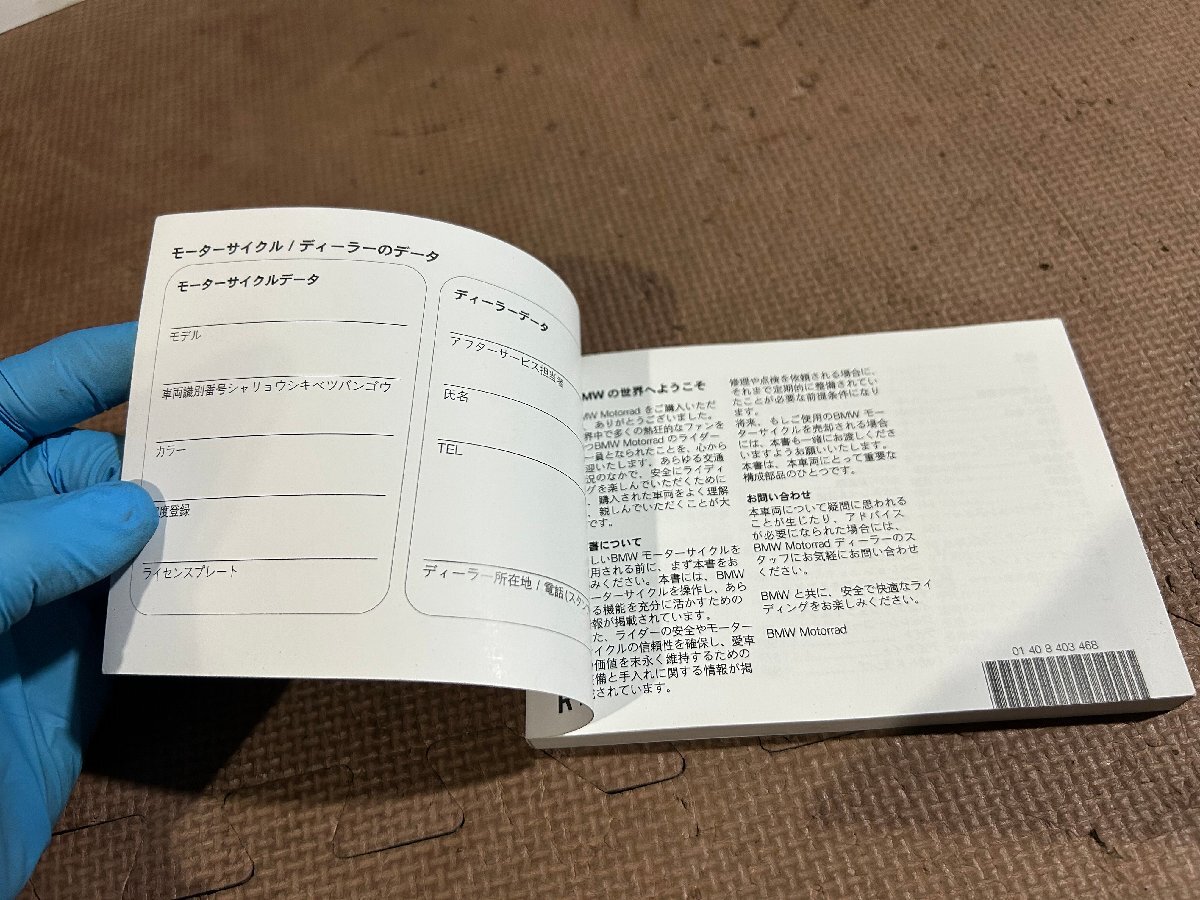 モーターサイクル / ディーラーのデータ
モーターサイクルデータ
モデル
車両識別番号シャリョウシキベツバンゴウ
カラー
度登録
ライセンスプレート
ディーラーデータ
アフターサービス担当
氏名
TEL
ディーラー所在地 / 電話(スタン
MW の世界へようこそ
MW Motorrad をご購入いただ
、ありがとうございました。
界中で多くの熱狂的なファンを
つBMW Motorrad のライダー
一員となられたことを、心から
迎いたします。あらゆる交通
況のなかで、安全にライディ
グを楽しんでいただくために
、購入された車両をよく理解
、親しんでいただくことが大
です。
書について
しいBMW モーターサイクルを
用される前に、まず本書をお
みください。本書には、BMW
ーターサイクルを操作し、あら
る機能を充分に活かすための
報が掲載されています。
た、ライダーの安全やモーター
イクルの信頼性を確保し、愛車
価値を末永く維持するための
備と手入れに関する情報が掲
されています。
修理や点検を依頼される場合に、
それまで定期的に整備されてい
たことが必要な前提条件になり
ます。
将来、もしご使用のBMW モー
ターサイクルを売却される場合
には、本書も一緒にお渡しくださ
いますようお願いいたします。
本書は、本車両にとって重要な
構成部品のひとつです。
お問い合わせ
本車両について疑問に思われる
ことが生じたり、アドバイス
が必要になられた場合には、
BMW Motorrad ディーラーのス
タッフにお気軽にお問い合わせ
ください。
BMW と共に、安全で快適なライ
ディングをお楽しみください。
BMW Motorrad
01 40 8 403 468
R